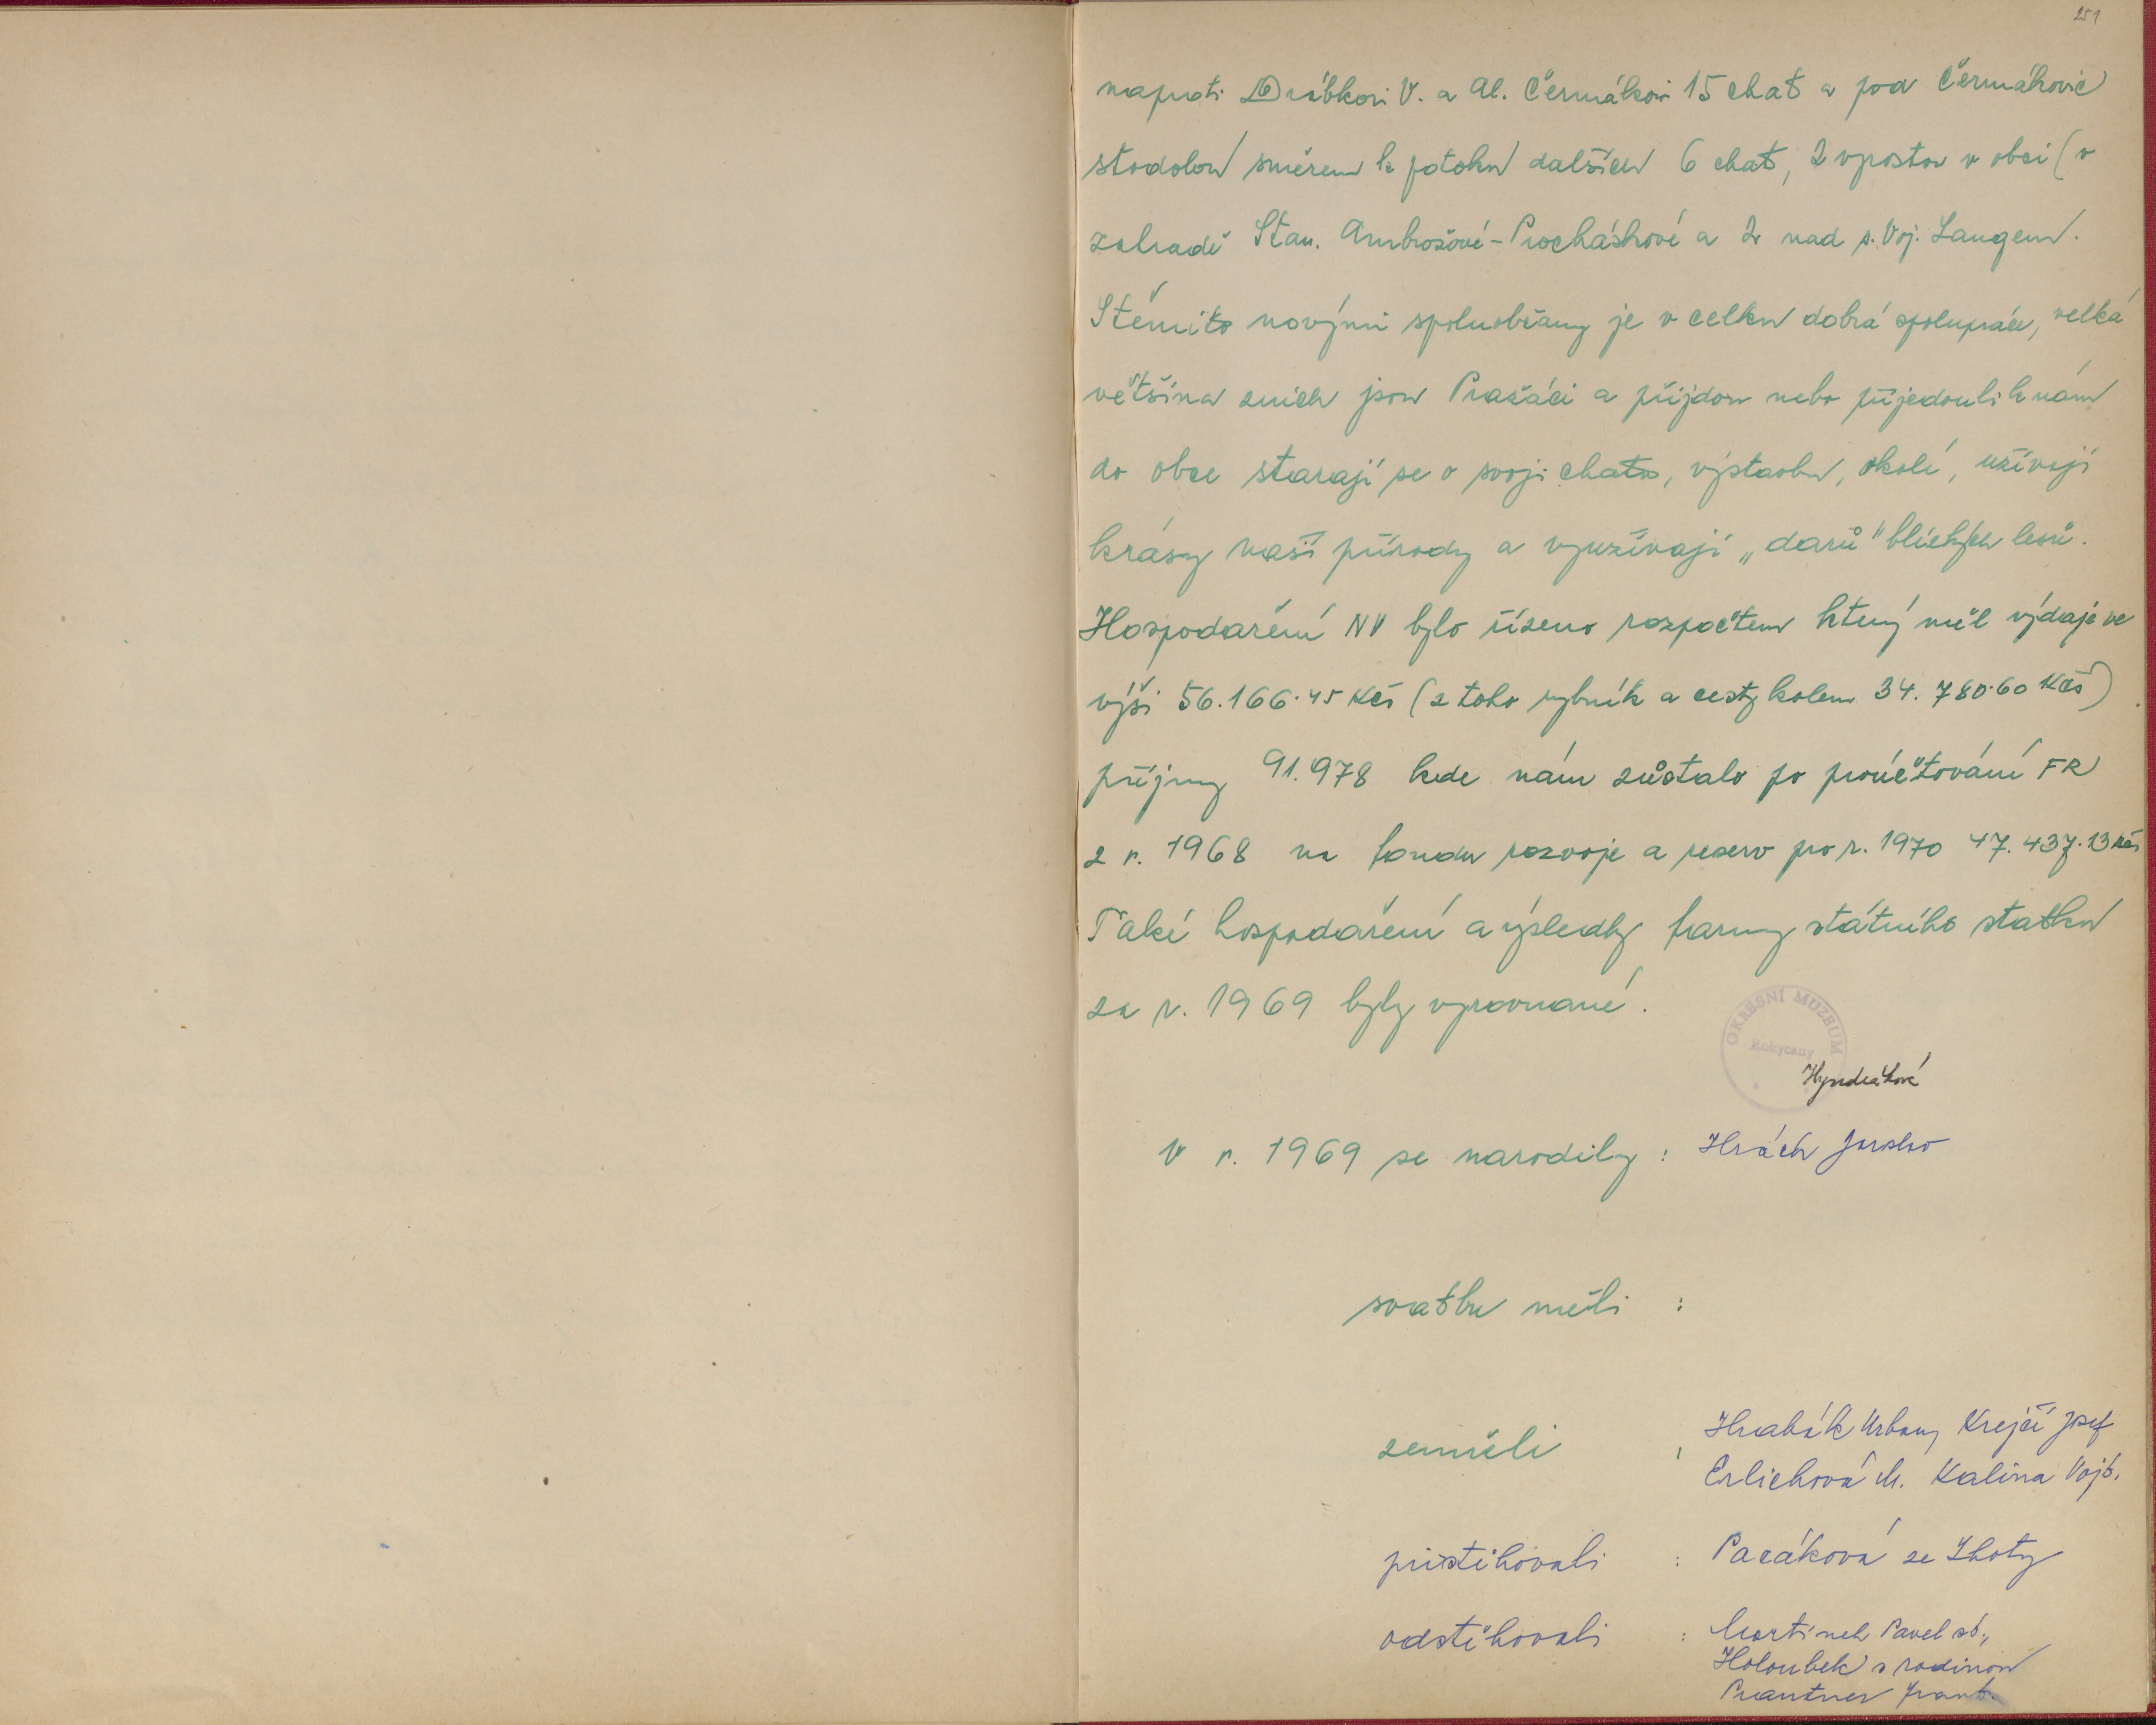 251
naproti Drábkovi V. a Al. Čermákovi 15 chat a pod Čermákovic
stodolou směrem k potoku dalších 6 chat, 2 vprostor v obci (v
zahradě Stan. Ambrožové-Procháskové a 2 nad s. Voj. Langem.
Stěmito novými spoluobčany je v celku dobrá spolupráce, velká
většina znich jsou Pražáci a přijdou nebo přijedouli k nám
do obce starají se o svoji chatu, výstavbu, okolí, užívají
krásy naší přírody a využívají „darů" blízkých lesů.
Hospodaření NV bylo řízeno rozpočtem který měl výdaje ve
výši 56.166.45 Kčs (z toho rybník a cesty kolem 34.780.60 Kčs)
příjmy 91.978 kde nám zůstalo po proúčtování FR
z r. 1968 na fondu rozvoje a reserv pro r. 1970 47.437.13 Kčs
Také hospodaření a výsledky farmy státního statku
za r. 1969 byly vyrovnané.
OKRESNÍ MUZEUM
Rokycany
V r. 1969 se narodily : Hrách
svatbu měli :
zemřeli : Hrabák Urban, Krejčí Josef
Erlichová M. Kalina Vojt.
přistěhovali : Pacáková ze Lhoty
odstěhovali : Martinek Pavel st.,
Holoubek s rodinou
Prantner Frant.